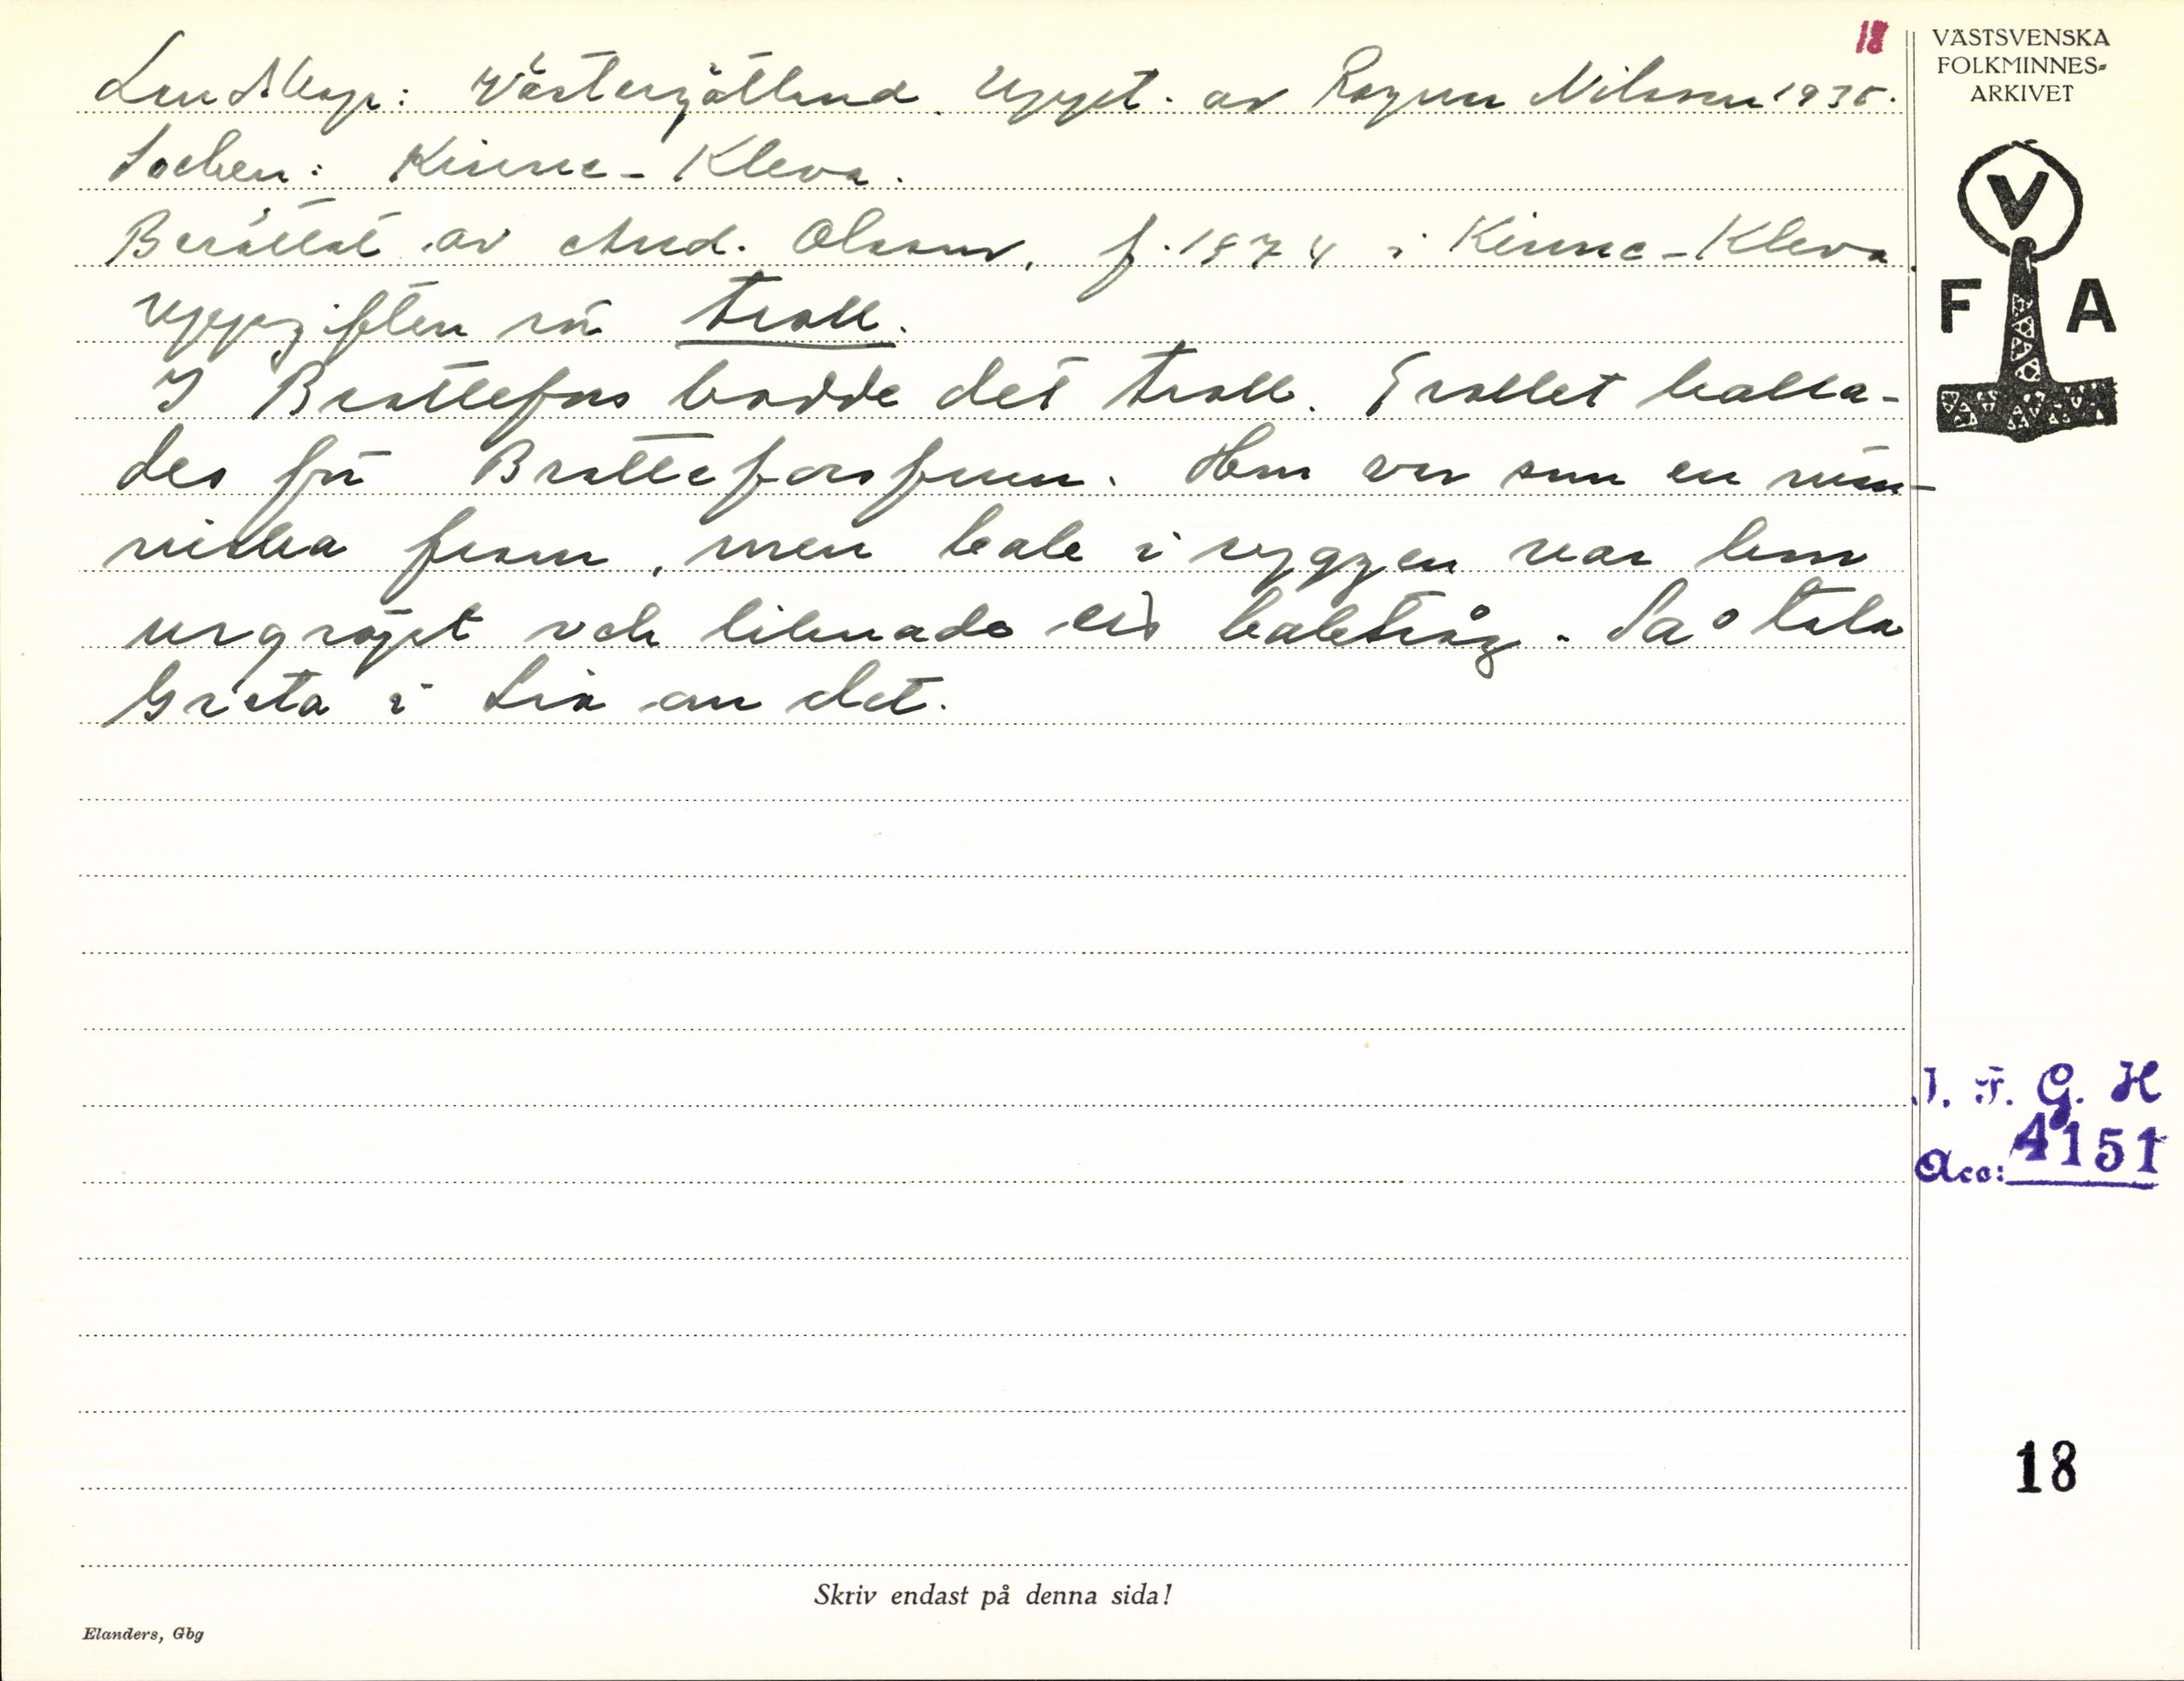 18
VÄSTSVENSKA
FOLKMINNES-
ARKIVET
Landskap: Västergötland. Uppt. av Ragnar Nilsson 1938.
Socken: Kinne-Kleva.
Berättat av And. Olsson, f. 1874 i Kinne-Kleva.
Uppgiften rör troll.
I Brattefors bodde det troll. Trollet kalla-
des för Bratteforsfrun. Hon var som en män-
niska fram, men bak i ryggen var hon
urgröpt och liknade ett baktråg. Så tala
Greta i Lia om det.
V
F A
I. F. G. H
Acc: 4151
18
Skriv endast på denna sida!
Elanders, Gbg